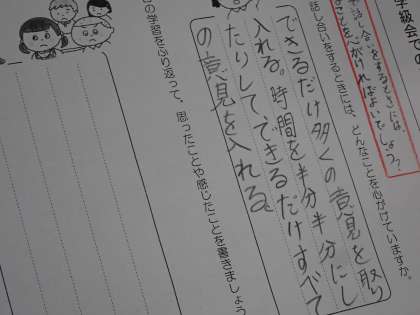 学級会での
話し合いをするときには、
なことを心がければよいでしょう?
話し合いをするときには、どんなことを心がけていますか。
できるだけ多くの意見を取り
入れる。時間を半分半分にし
たりして、できるだけすべて
の意見を入れる。
の学習をふり返って、思ったことや感じたことを書きましょう